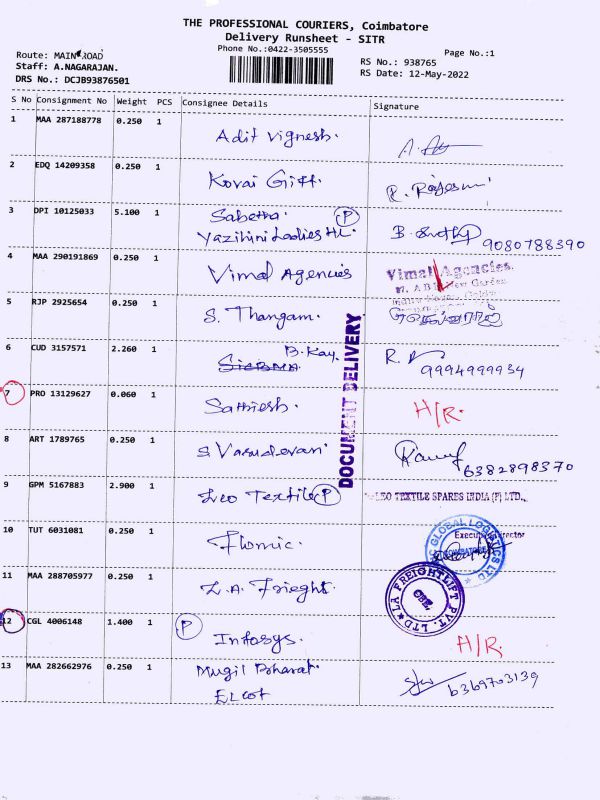 THE PROFESSIONAL COURIERS, Coimbatore
Delivery Runsheet - SITR
Phone No.:0422-3505555
Page No.:1
Route: MAIN ROAD
Staff: A.NAGARAJAN.
DRS No.: DCJB93876501
RS No.: 938765
RS Date: 12-May-2022
S No Consignment No Weight PCS Consignee Details Signature
1 MAA 287188778 0.250 1 Adit Vignesh.
2 EDQ 14209358 0.250 1 Kovai Gift. R. Rajeswi
3 DPI 10125033 5.100 1 Sabetha. P
Yazihini Ladies HL. B. 9080788390
4 MAA 290191869 0.250 1 Vimal Agencies Vimal Agencies.
5 RJP 2925654 0.250 1 S. Thangam.
6 CUD 3157571 2.260 1 B. Kay. R.
9994999934
DOCUMENT DELIVERY
7 PRO 13129627 0.060 1 Sathiesh. H/R.
8 ART 1789765 0.250 1 S Vasudevan 6382898370
9 GPM 5167883 2.900 1 Leo Textile P LEO TEXTILE SPARES INDIA (P) LTD.,
Executive Director
10 TUT 6031081 0.250 1 Flomic. GLOBAL LOGISTICS LTD
COIMBATORE
11 MAA 288705977 0.250 1 L.A. Frieght. LA FREIGHTLIFT PVT. LTD
CBE.
12 CGL 4006148 1.400 1 P Infosys. H/R.
13 MAA 282662976 0.250 1 Mugil Bharat. 6369703139
ELCOT